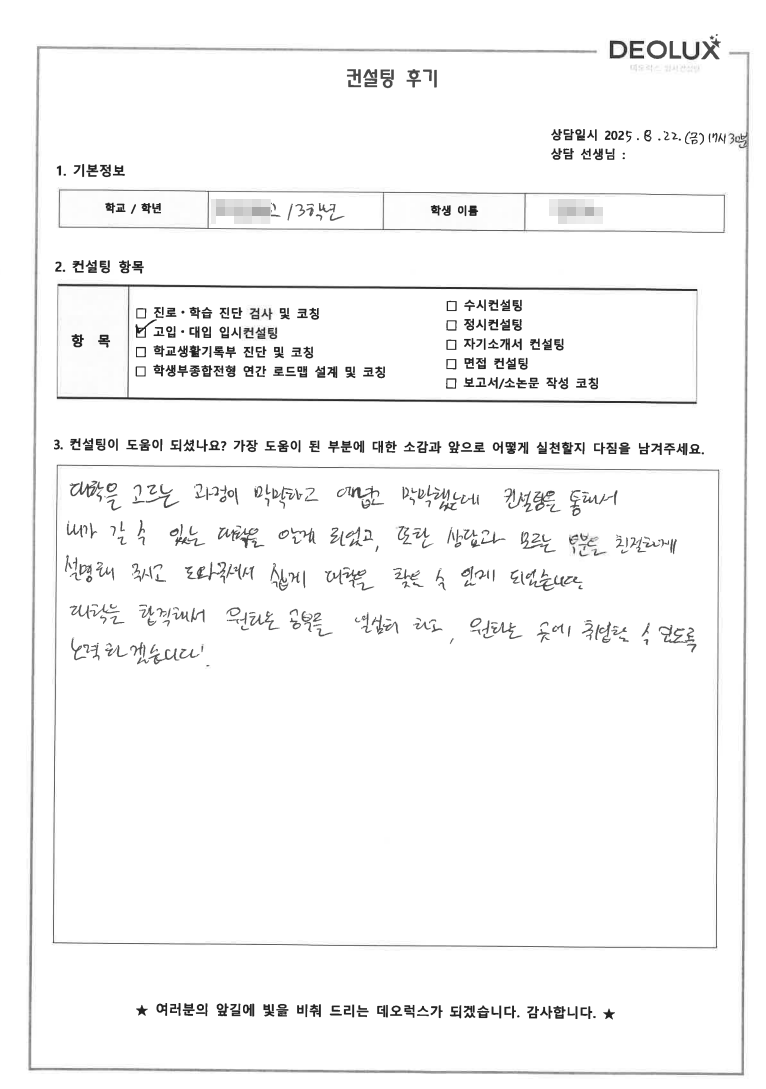 DEOLUX
컨설팅 후기
상담일시 2025. 8. 22. (금) 17시 30분
상담 선생님 :
1. 기본정보
학교 / 학년 고 / 3학년 학생 이름
2. 컨설팅 항목
항 목
☐ 진로·학습 진단 검사 및 코칭
☑ 고입·대입 입시컨설팅
☐ 학교생활기록부 진단 및 코칭
☐ 학생부종합전형 연간 로드맵 설계 및 코칭
☐ 수시컨설팅
☐ 정시컨설팅
☐ 자기소개서 컨설팅
☐ 면접 컨설팅
☐ 보고서/소논문 작성 코칭
3. 컨설팅이 도움이 되셨나요? 가장 도움이 된 부분에 대한 소감과 앞으로 어떻게 실천할지 다짐을 남겨주세요.
대학을 고르는 과정이 막막하고 어렵고 막막했는데 컨설팅을 통해서
내가 갈 수 있는 대학을 알게 되었고, 또한 상담과 모르는 부분을 친절하게
설명해 주시고 도와주셔서 쉽게 대학을 찾을 수 있게 되었습니다.
대학을 합격해서 원하는 공부를 열심히 하고, 원하는 곳에 취업할 수 있도록
노력하겠습니다!
★ 여러분의 앞길에 빛을 비춰 드리는 데오럭스가 되겠습니다. 감사합니다. ★